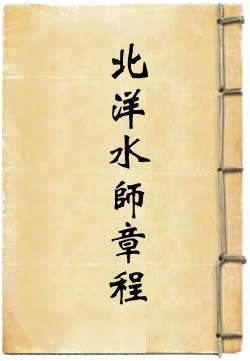 北洋水師章程